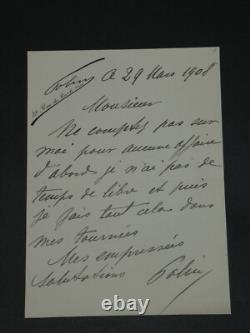 Polin
Ce 29 Mars 1908
Monsieur
Ne comptez pas sur
moi pour aucune affaire
d'abord je n'ai pas de
temps de libre et puis
je fais tout cela dans
mes tournées
Mes empressées
salutations Polin